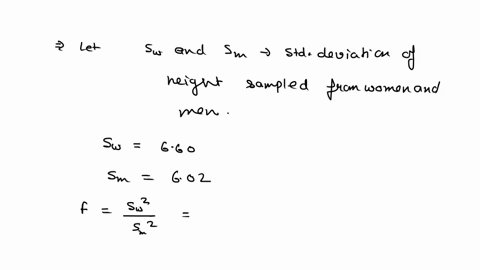 ⇒ Let Sw and Sm → Std. deviation of
height sampled from women and
men.
Sw = 6.60
Sm = 6.02
f = Sw² / Sm² =